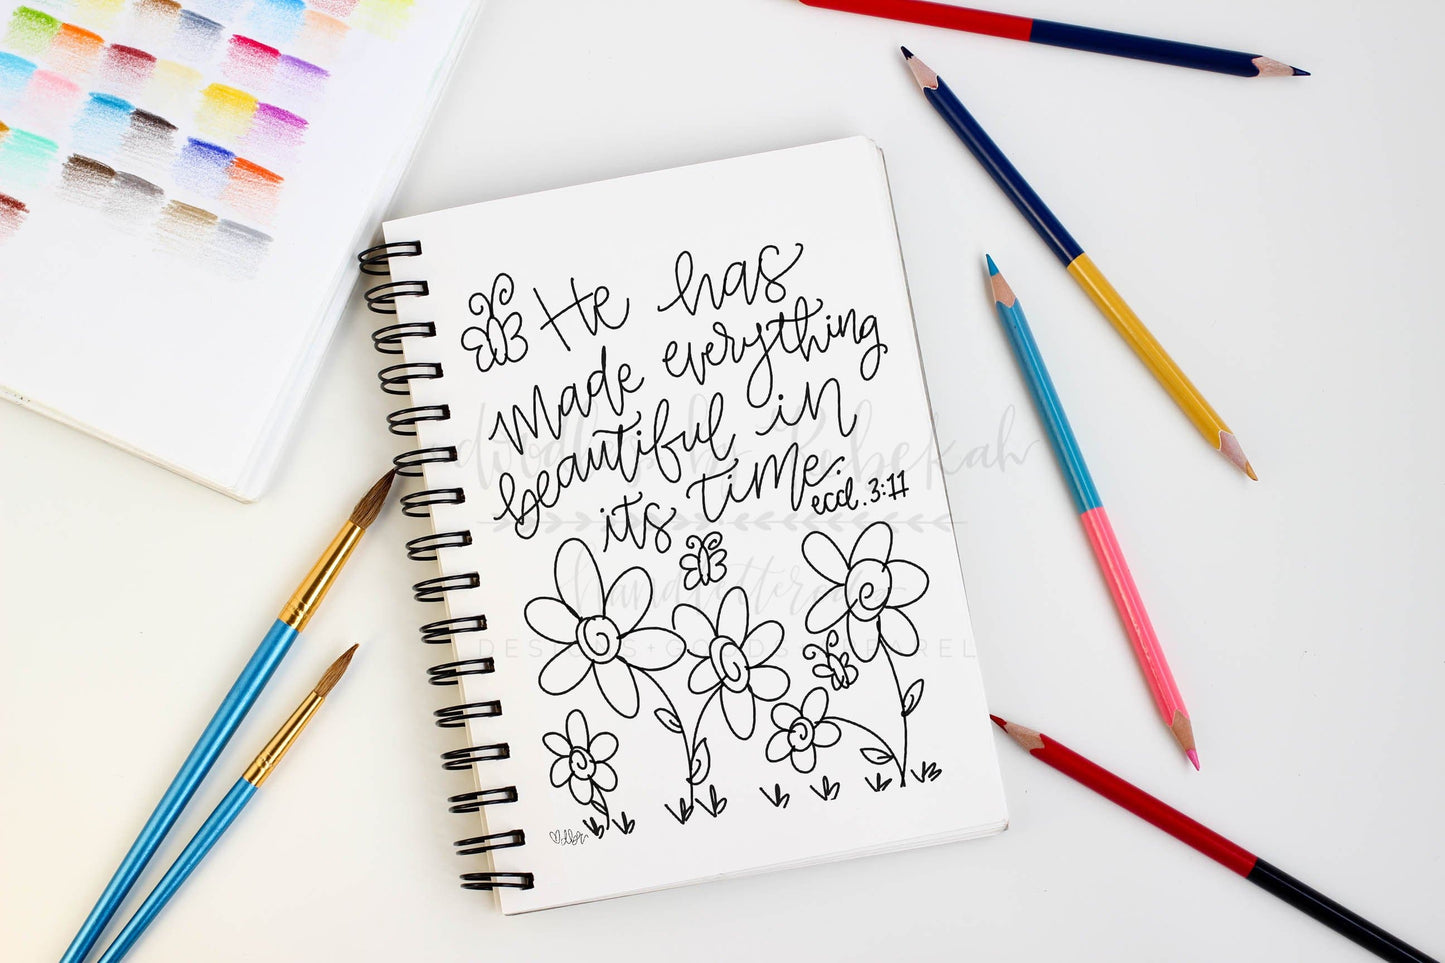 He has
made everything
beautiful in
its time.
eccl. 3:11
doodles by Rebekah
handlettered
DESIGNS+GOODS+APPAREL